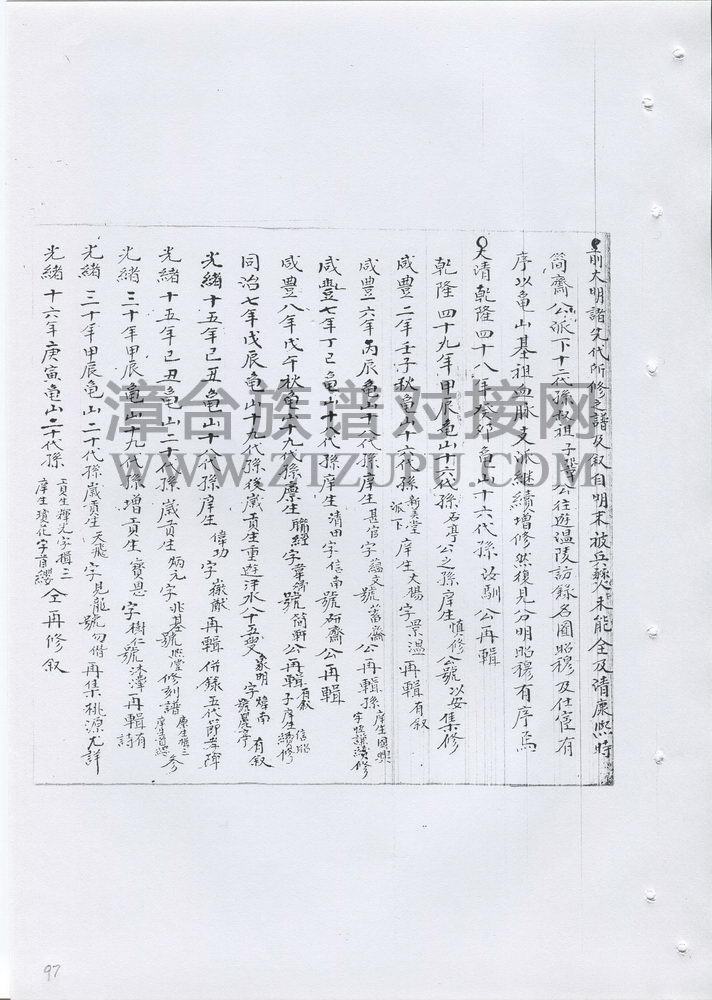 前大明諸先代所修之譜及叙自明末被兵燹未能全及清康熙時
簡齋公派下十二代孫叔祖子公往遊温陵訪錄名圖昭穆及仕宦有
序以龜山基祖血脈支派継續增修然復見分明昭穆有序焉
大清乾隆四十八年癸卯龜山十六代孫汝馴公再輯
乾隆四十九年甲辰龜山十六代孫石亭公之孫庠生慎修公號以安集修
咸豐二年壬子秋龜山十六代孫新美堂派下庠生大楊字景温再輯有叙
咸豐六年丙辰龜山十八代孫庠生甚官字蘊文號蓄齋公再輯孫庠生國興字續修
咸豐七年丁巳龜山十八代孫庠生清田字信南號研齋公再輯
咸豐八年戊午秋龜山十九代孫廩生聯經字號簡軒公再輯有叙子庠生信昭續修
同治七年戊辰龜山十九代孫後歲貢生重遊泮水八十五叟象明字煒南號麗亭有叙
光緒十五年己丑龜山十八代孫庠生偉功字嶽猷再輯併錄五代節孝陣
光緒十五年己丑龜山二十代孫歲貢生炳元字兆基號熙堂修刻譜廩生楫三庠生道參
光緒三十年甲辰龜山十九代孫增貢生寶恩字樹仁號沐澤再輯有詩
光緒三十年甲辰龜山二十代孫歲貢生天飛字見龍號勿借再集桃源尤詳
光緒十六年庚寅龜山二十代孫貢生輝光字楫三庠生瓊花字首纓仝再修叙
漳台族谱对接网
WWW.ZTZUPU.COM
97